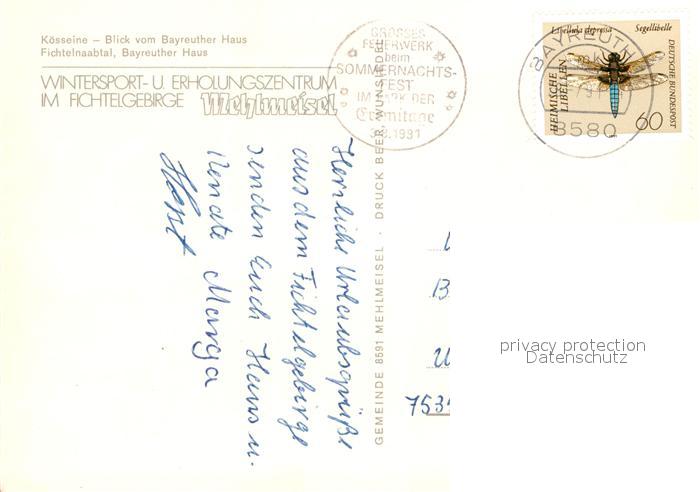 Kösseine – Blick vom Bayreuther Haus
Fichtelnaabtal, Bayreuther Haus
WINTERSPORT- U. ERHOLUNGSZENTRUM
IM FICHTELGEBIRGE Mehlmeisel
GROSSES
FEUERWERK
beim
SOMMERNACHTS-
FEST
IM PARK DER
Eremitage
3.8.1991
BAYREUTH
8580
Libellula depressa Segellibelle
HEIMISCHE
LIBELLEN
DEUTSCHE BUNDESPOST
60
Herrliche Urlaubsgrüße
aus dem Fichtelgebirge
senden Euch Hans u.
Renate Marga
Horst
GEMEINDE 8591 MEHLMEISEL · DRUCK BEER, WUNSIEDEL
B
753
privacy protection
Datenschutz